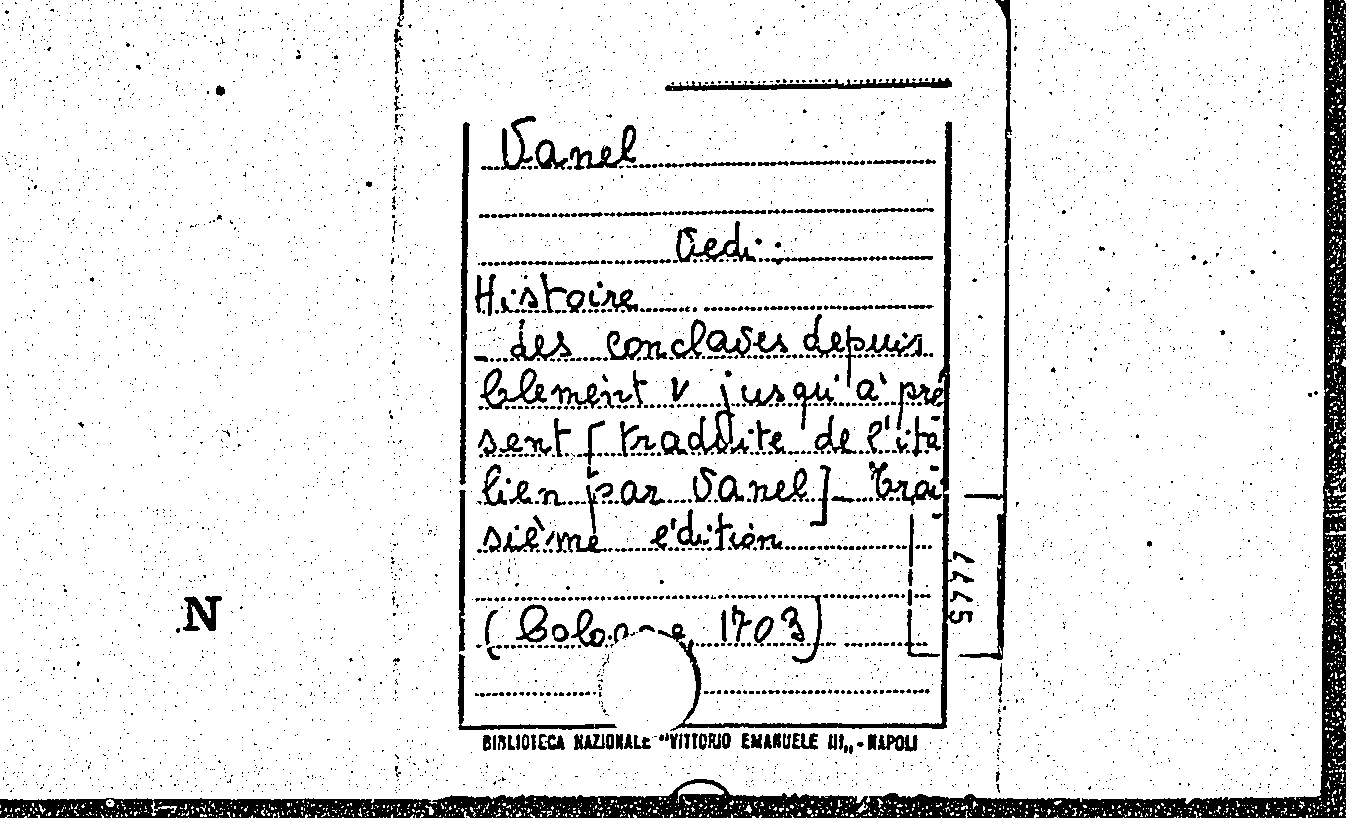 Vanel
Vedi:
Histoire
- des conclaves depuis
Clement V jusqu'à pré
sent [traduite de l'ita
lien par Vanel] - Troi
sième édition
N
(Cologne, 1703)
BIBLIOTECA NAZIONALE "VITTORIO EMANUELE III„ - NAPOLI